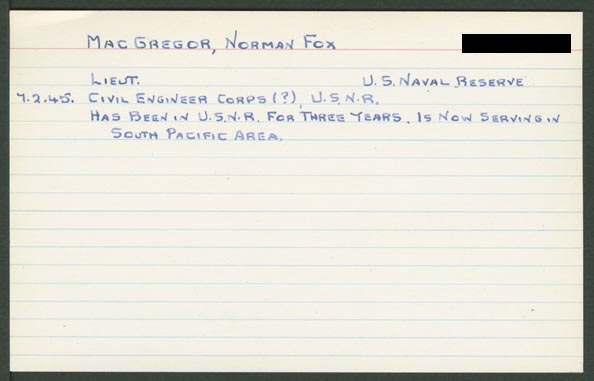 MACGREGOR, NORMAN FOX
LIEUT. U.S. NAVAL RESERVE
7.2.45. CIVIL ENGINEER CORPS (?), U.S.N.R.
HAS BEEN IN U.S.N.R. FOR THREE YEARS. IS NOW SERVING IN
SOUTH PACIFIC AREA.